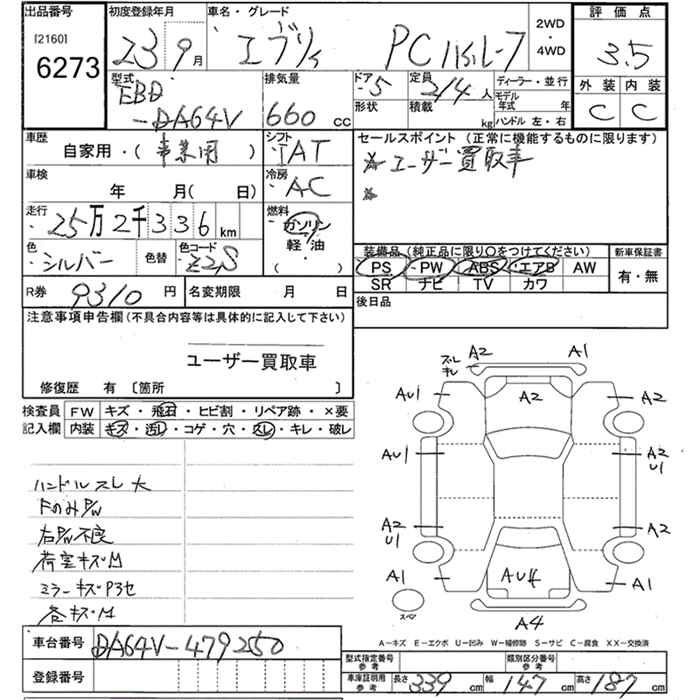 出品番号
[2160]
6273
初度登録年月
23 9月
車名・グレード
エブリィ PCハイルーフ
2WD
・
4WD
評価点
3.5
外装 内装
C C
型式
EBD
-DA64V
排気量
660 cc
ドア
・5
形状
定員
2/4 人
積載
kg
ディーラー・並行
モデル
年式 年
ハンドル 左・右
車歴
自家用・(事業用)
シフト
IAT
車検
年 月(日)
冷房
AC
走行
25万2千336km
燃料
ガソリン
軽油
( )
色
シルバー
色替
色コード
Z2S
R券 9310 円
名変期限 月 日
セールスポイント (正常に機能するものに限ります)
ユーザー買取車
装備品(純正品に限り〇をつけてください)
新車保証書
PS ・PW ABS ・エアB AW
SR ナビ TV カワ
有・無
後日品
注意事項申告欄(不具合内容等は具体的に記入して下さい)
ユーザー買取車
修復歴 有〔箇所 〕
検査員
記入欄
FW キズ・飛石・ヒビ割・リペア跡・×要
内装 キズ・汚レ・コゲ・穴・スレ・キレ・破レ
ハンドルスレ大
FのみP/W
右P/W不良
荷室キズM
ミラーキズ
各キズM
スレ
キレ
A2 A1
AU1 A2 A2
AU1 A2
U1
A2
U1 A2
A1 AU4 A1
スペア
A4
A-キズ E-エクボ U-凹み W-補修跡 S-サビ C-腐食 XX-交換済
車台番号 DA64V-479250
登録番号
型式指定番号
参考
類別区分番号
参考
車庫証明用
参考
長さ 339 cm 幅 147 cm 高さ 187 cm